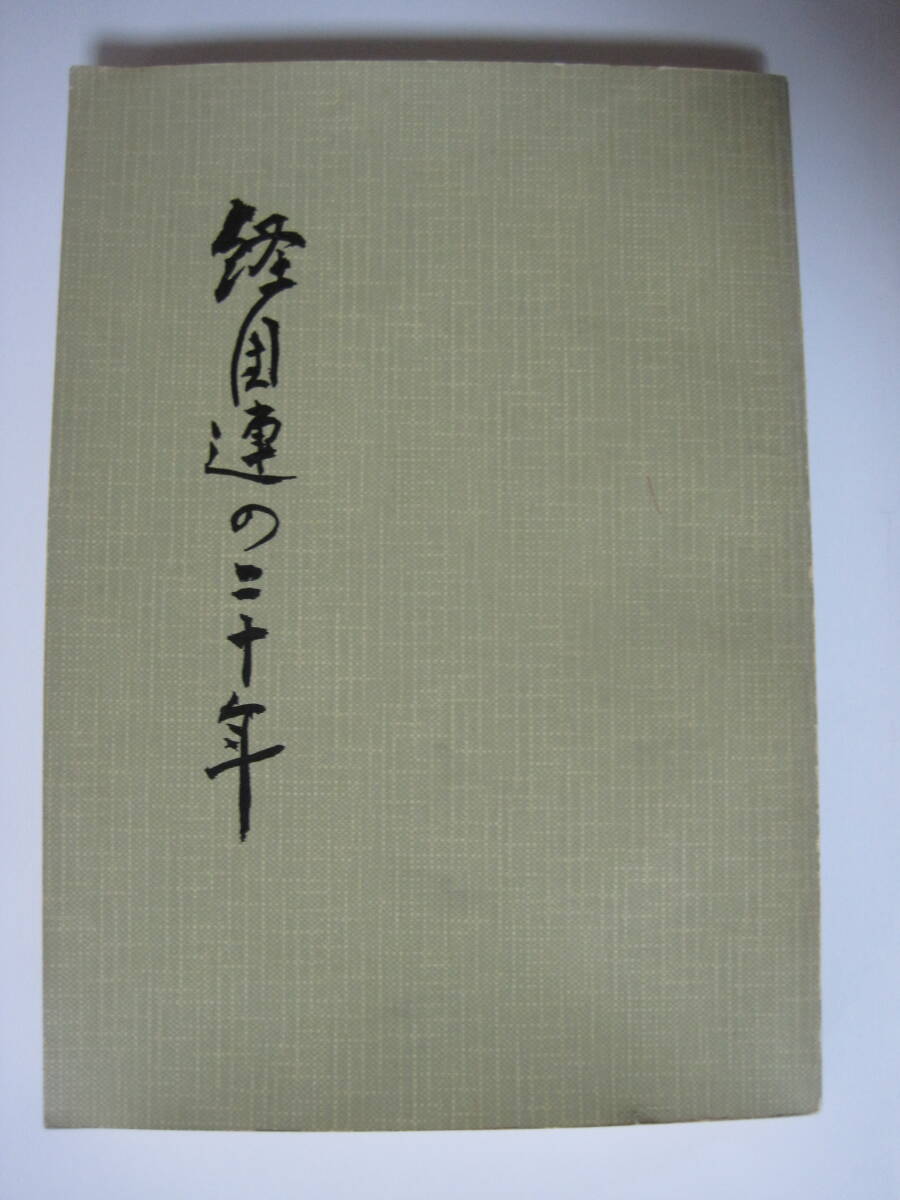 経団連の二十年